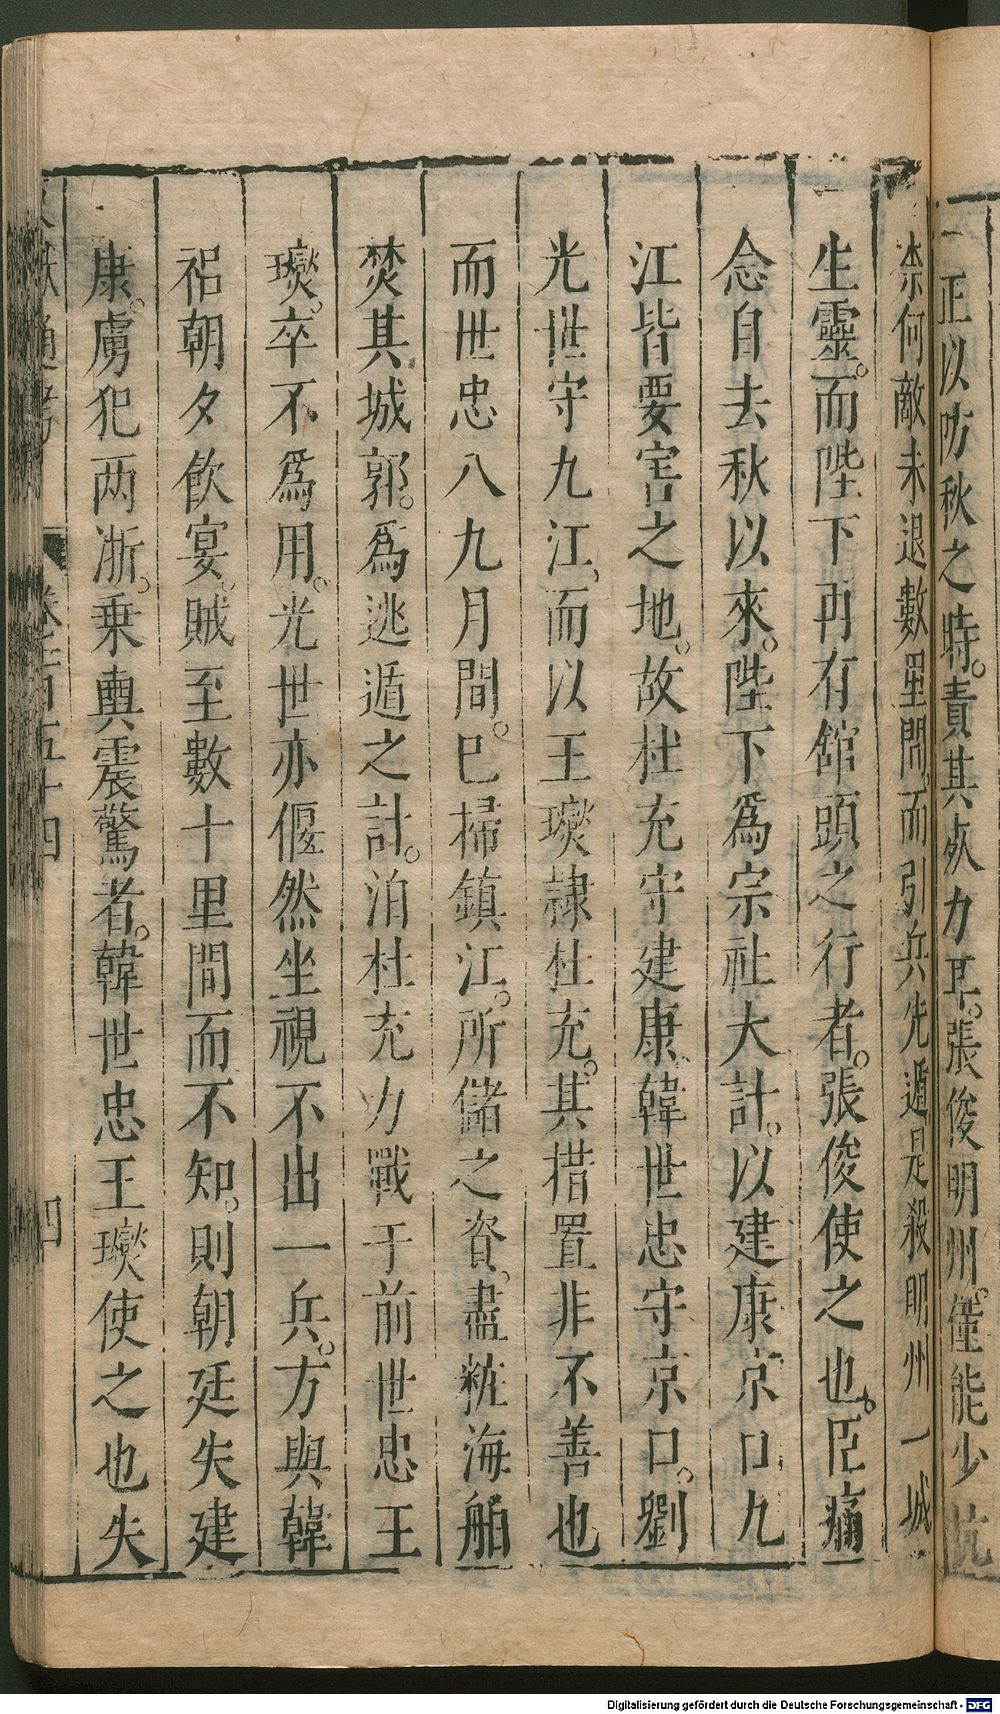 正以防秋之時責其死力耳張俊明州僅能少抗
柰何敵未退數里間而引兵先遁是殺明州一城
生靈而陛下再有館頭之行者張俊使之也臣痛
念自去秋以來陛下爲宗社大計以建康京口九
江皆要害之地故杜充守建康韓世忠守京口劉
光世守九江而以王𤫉隷杜充其措置非不善也
而世忠八九月間已掃鎮江所儲之資盡粧海舶
焚其城郭爲逃遁之計洎杜充力戰于前世忠王
𤫉卒不爲用光世亦偃然坐視不出一兵方與韓
祀朝夕飲宴賊至數十里間而不知則朝廷失建
康虜犯两浙乗輿震驚者韓世忠王𤫉使之也失
文獻通考 卷一百五十四 四
Digitalisierung gefördert durch die Deutsche Forschungsgemeinschaft - DFG